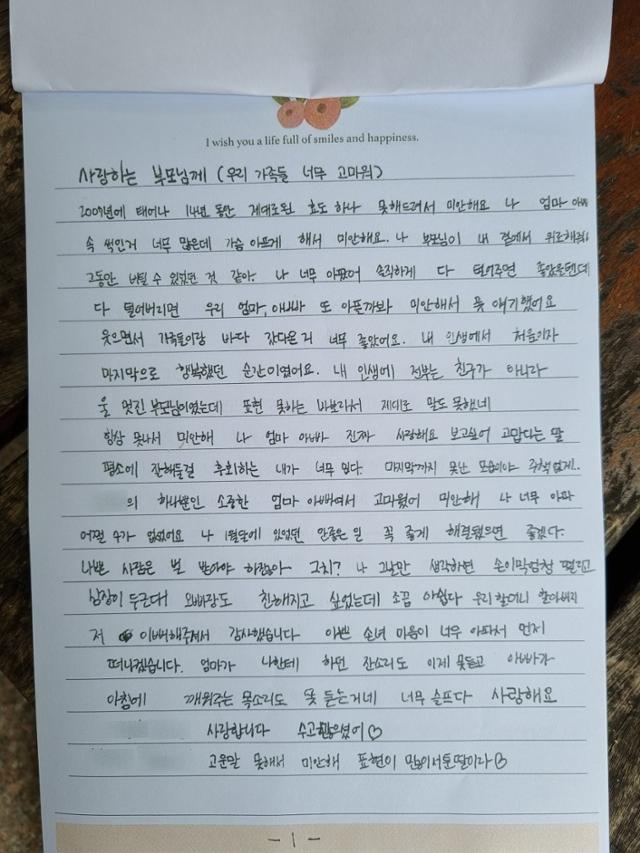 I wish you a life full of smiles and happiness.
사랑하는 부모님께 (우리 가족들 너무 고마워)
2009년에 태어나 14년 동안 제대로된 효도 하나 못해드려서 미안해요 나 엄마 아빠
속 썩인거 너무 많은데 가슴 아프게 해서 미안해요. 나 부모님이 내 곁에서 위로해줘서
그동안 버틸 수 있었던 것 같아. 나 너무 아팠어 솔직하게 다 털어주면 좋았을텐데
다 털어버리면 우리 엄마, 아빠가 또 아플까봐 미안해서 못 얘기했어요
웃으면서 가족들이랑 바다 갔다온거 너무 좋았어요. 내 인생에서 처음이자
마지막으로 행복했던 순간이였어요. 내 인생에 전부는 친구가 아니라
울 멋진 부모님이였는데 표현 못하는 바보라서 제대로 말도 못했네
항상 못나서 미안해 나 엄마 아빠 진짜 사랑해요 보고싶어 고맙다는 말
평소에 잔뜩해둘걸 후회하는 내가 너무 밉다. 마지막까지 못난 모습이야 주책없게..
의 하나뿐인 소중한 엄마 아빠여서 고마웠어 미안해 나 너무 아파
어쩔 수가 없었어요 나 1월달에 있었던 안좋은 일 꼭 좋게 해결됐으면 좋겠다.
나쁜 사람은 벌 받아야 하잖아 그치? 나 그날만 생각하면 손이 막 엄청 떨리고
심장이 두근대 오빠랑도 친해지고 싶었는데 조금 아쉽다 우리 할머니 할아버지
저 이뻐해주셔서 감사했습니다 이쁜 손녀 마음이 너무 아파서 먼저
떠나겠습니다. 엄마가 나한테 하던 잔소리도 이제 못듣고 아빠가
아침에 깨워주는 목소리도 못 듣는거네 너무 슬프다 사랑해요
사랑합니다 수고많으셨어♡
고운말 못해서 미안해 표현이 많이 서툰 딸이라♡
- 1 -